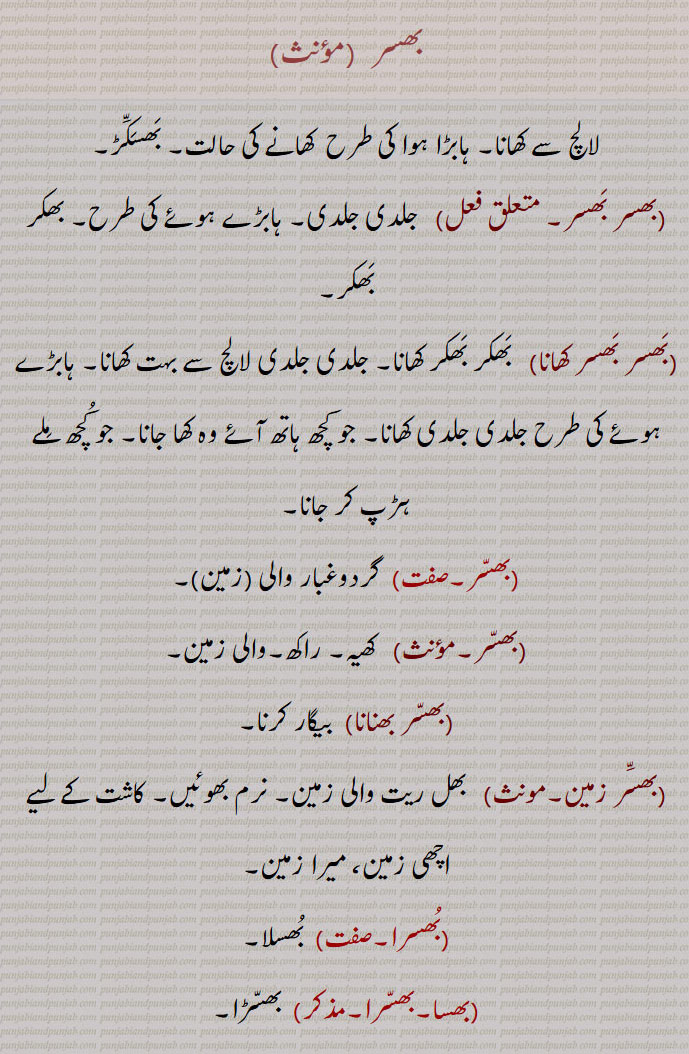 بھسر (مؤنث)
لالچ سے کھانا۔ ہابڑا ہوا کی طرح کھانے کی حالت۔ بَھسَکِّڑ۔
(بھسر بَھسر۔ متعلق فعل) جلدی جلدی۔ ہابڑے ہوئے کی طرح۔ بھکر
بَھکر۔
(بَھسر بَھسر کھانا) بَھکر بَھکر کھانا۔ جلدی جلدی لالچ سے بہت کھانا۔ ہابڑے
ہوئے کی طرح جلدی جلدی کھانا۔ جو کچھ ہاتھ آئے وہ کھا جانا۔ جو کُچھ مِلے
ہڑپ کر جانا۔
(بھسّر۔صفت) گردوغبار والی (زمین)۔
(بھسّر۔مؤنث) کھیہ۔ راکھ۔والی زمین۔
(بھسّر بھنانا) بیگار کرنا۔
(بھسِّر زمین۔مونث) بھل ریت والی زمین۔ نرم بھوئیں۔ کاشت کے لیے
اچھی زمین، میرا زمین۔
(بُھسرا۔صفت) بُھسلا۔
(بھسا۔بھسّرا۔مذکر) بھسّڑا۔